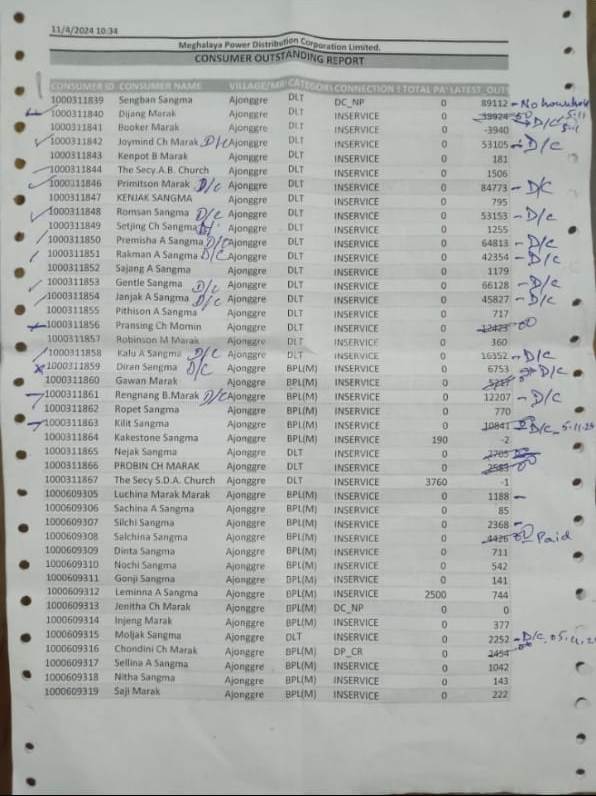 11/4/2024 10:34
Meghalaya Power Distribution Corporation Limited.
CONSUMER OUTSTANDING REPORT
CONSUMER ID CONSUMER NAME VILLAGE/MR CATEGORY CONNECTION S TOTAL PA LATEST_OUTS
1000311839 Sengban Sangma Ajonggre DLT DC_NP 0 89112 - No household
1000311840 Dijang Marak Ajonggre DLT INSERVICE 0 D/C 5-11
1000311841 Booker Marak Ajonggre DLT INSERVICE 0 -3940
1000311842 Joymind Ch Marak D/C Ajonggre DLT INSERVICE 0 53105 - D/C
1000311843 Kenpot B Marak Ajonggre DLT INSERVICE 0 181
1000311844 The Secy A.B. Church Ajonggre DLT INSERVICE 0 1506
1000311846 Primitson Marak D/C Ajonggre DLT INSERVICE 0 84773 - D/C
1000311847 KENJAK SANGMA Ajonggre DLT INSERVICE 0 795
1000311848 Romsan Sangma D/C Ajonggre DLT INSERVICE 0 53153 - D/C
1000311849 Setjing Ch Sangma Ajonggre DLT INSERVICE 0 1255
1000311850 Premisha A Sangma D/C Ajonggre DLT INSERVICE 0 64813 - D/C
1000311851 Rakman A Sangma D/C Ajonggre DLT INSERVICE 0 42354 - D/C
1000311852 Sajang A Sangma Ajonggre DLT INSERVICE 0 1179
1000311853 Gentle Sangma D/C Ajonggre DLT INSERVICE 0 66128 - D/C
1000311854 Janjak A Sangma D/C Ajonggre DLT INSERVICE 0 45827 - D/C
1000311855 Pithison A Sangma Ajonggre DLT INSERVICE 0 717
1000311856 Pransing Ch Momin Ajonggre DLT INSERVICE 0 12423 00
1000311857 Robinson M Marak Ajonggre DLT INSERVICE 0 360
1000311858 Kalu A Sangma D/C Ajonggre DLT INSERVICE 0 16352 - D/C
1000311859 Diran Sengma D/C Ajonggre BPL(M) INSERVICE 0 6753 D/C
1000311860 Gawan Marak Ajonggre BPL(M) INSERVICE 0
1000311861 Rengnang B.Marak D/C Ajonggre BPL(M) INSERVICE 0 12207 - D/C
1000311862 Ropet Sangma Ajonggre BPL(M) INSERVICE 0 770
1000311863 Kilit Sangma Ajonggre BPL(M) INSERVICE 0 10841 D/C 5-11-24
1000311864 Kakestone Sangma Ajonggre BPL(M) INSERVICE 190 -2
1000311865 Nejak Sangma Ajonggre DLT INSERVICE 0
1000311866 PROBIN CH MARAK Ajonggre DLT INSERVICE 0
1000311867 The Secy S.D.A. Church Ajonggre DLT INSERVICE 3760 -1
1000609305 Luchina Marak Marak Ajonggre BPL(M) INSERVICE 0 1188 -
1000609306 Sachina A Sangma Ajonggre BPL(M) INSERVICE 0 85
1000609307 Silchi Sangma Ajonggre BPL(M) INSERVICE 0 2368 -
1000609308 Salchina Sangma Ajonggre BPL(M) INSERVICE 0 4426 Paid
1000609309 Dinta Sangma Ajonggre BPL(M) INSERVICE 0 711
1000609310 Nochi Sangma Ajonggre BPL(M) INSERVICE 0 542
1000609311 Gonji Sangma Ajonggre BPL(M) INSERVICE 0 141
1000609312 Leminna A Sangma Ajonggre BPL(M) INSERVICE 2500 744
1000609313 Jenitha Ch Marak Ajonggre BPL(M) DC_NP 0 0
1000609314 Injeng Marak Ajonggre BPL(M) INSERVICE 0 377
1000609315 Moljak Sangma Ajonggre DLT INSERVICE 0 2252 - D/C 05-11-2
1000609316 Chondini Ch Marak Ajonggre BPL(M) DP_CR 0 2454
1000609317 Sellina A Sangma Ajonggre BPL(M) INSERVICE 0 1042
1000609318 Nitha Sangma Ajonggre BPL(M) INSERVICE 0 143
1000609319 Saji Marak Ajonggre BPL(M) INSERVICE 0 222